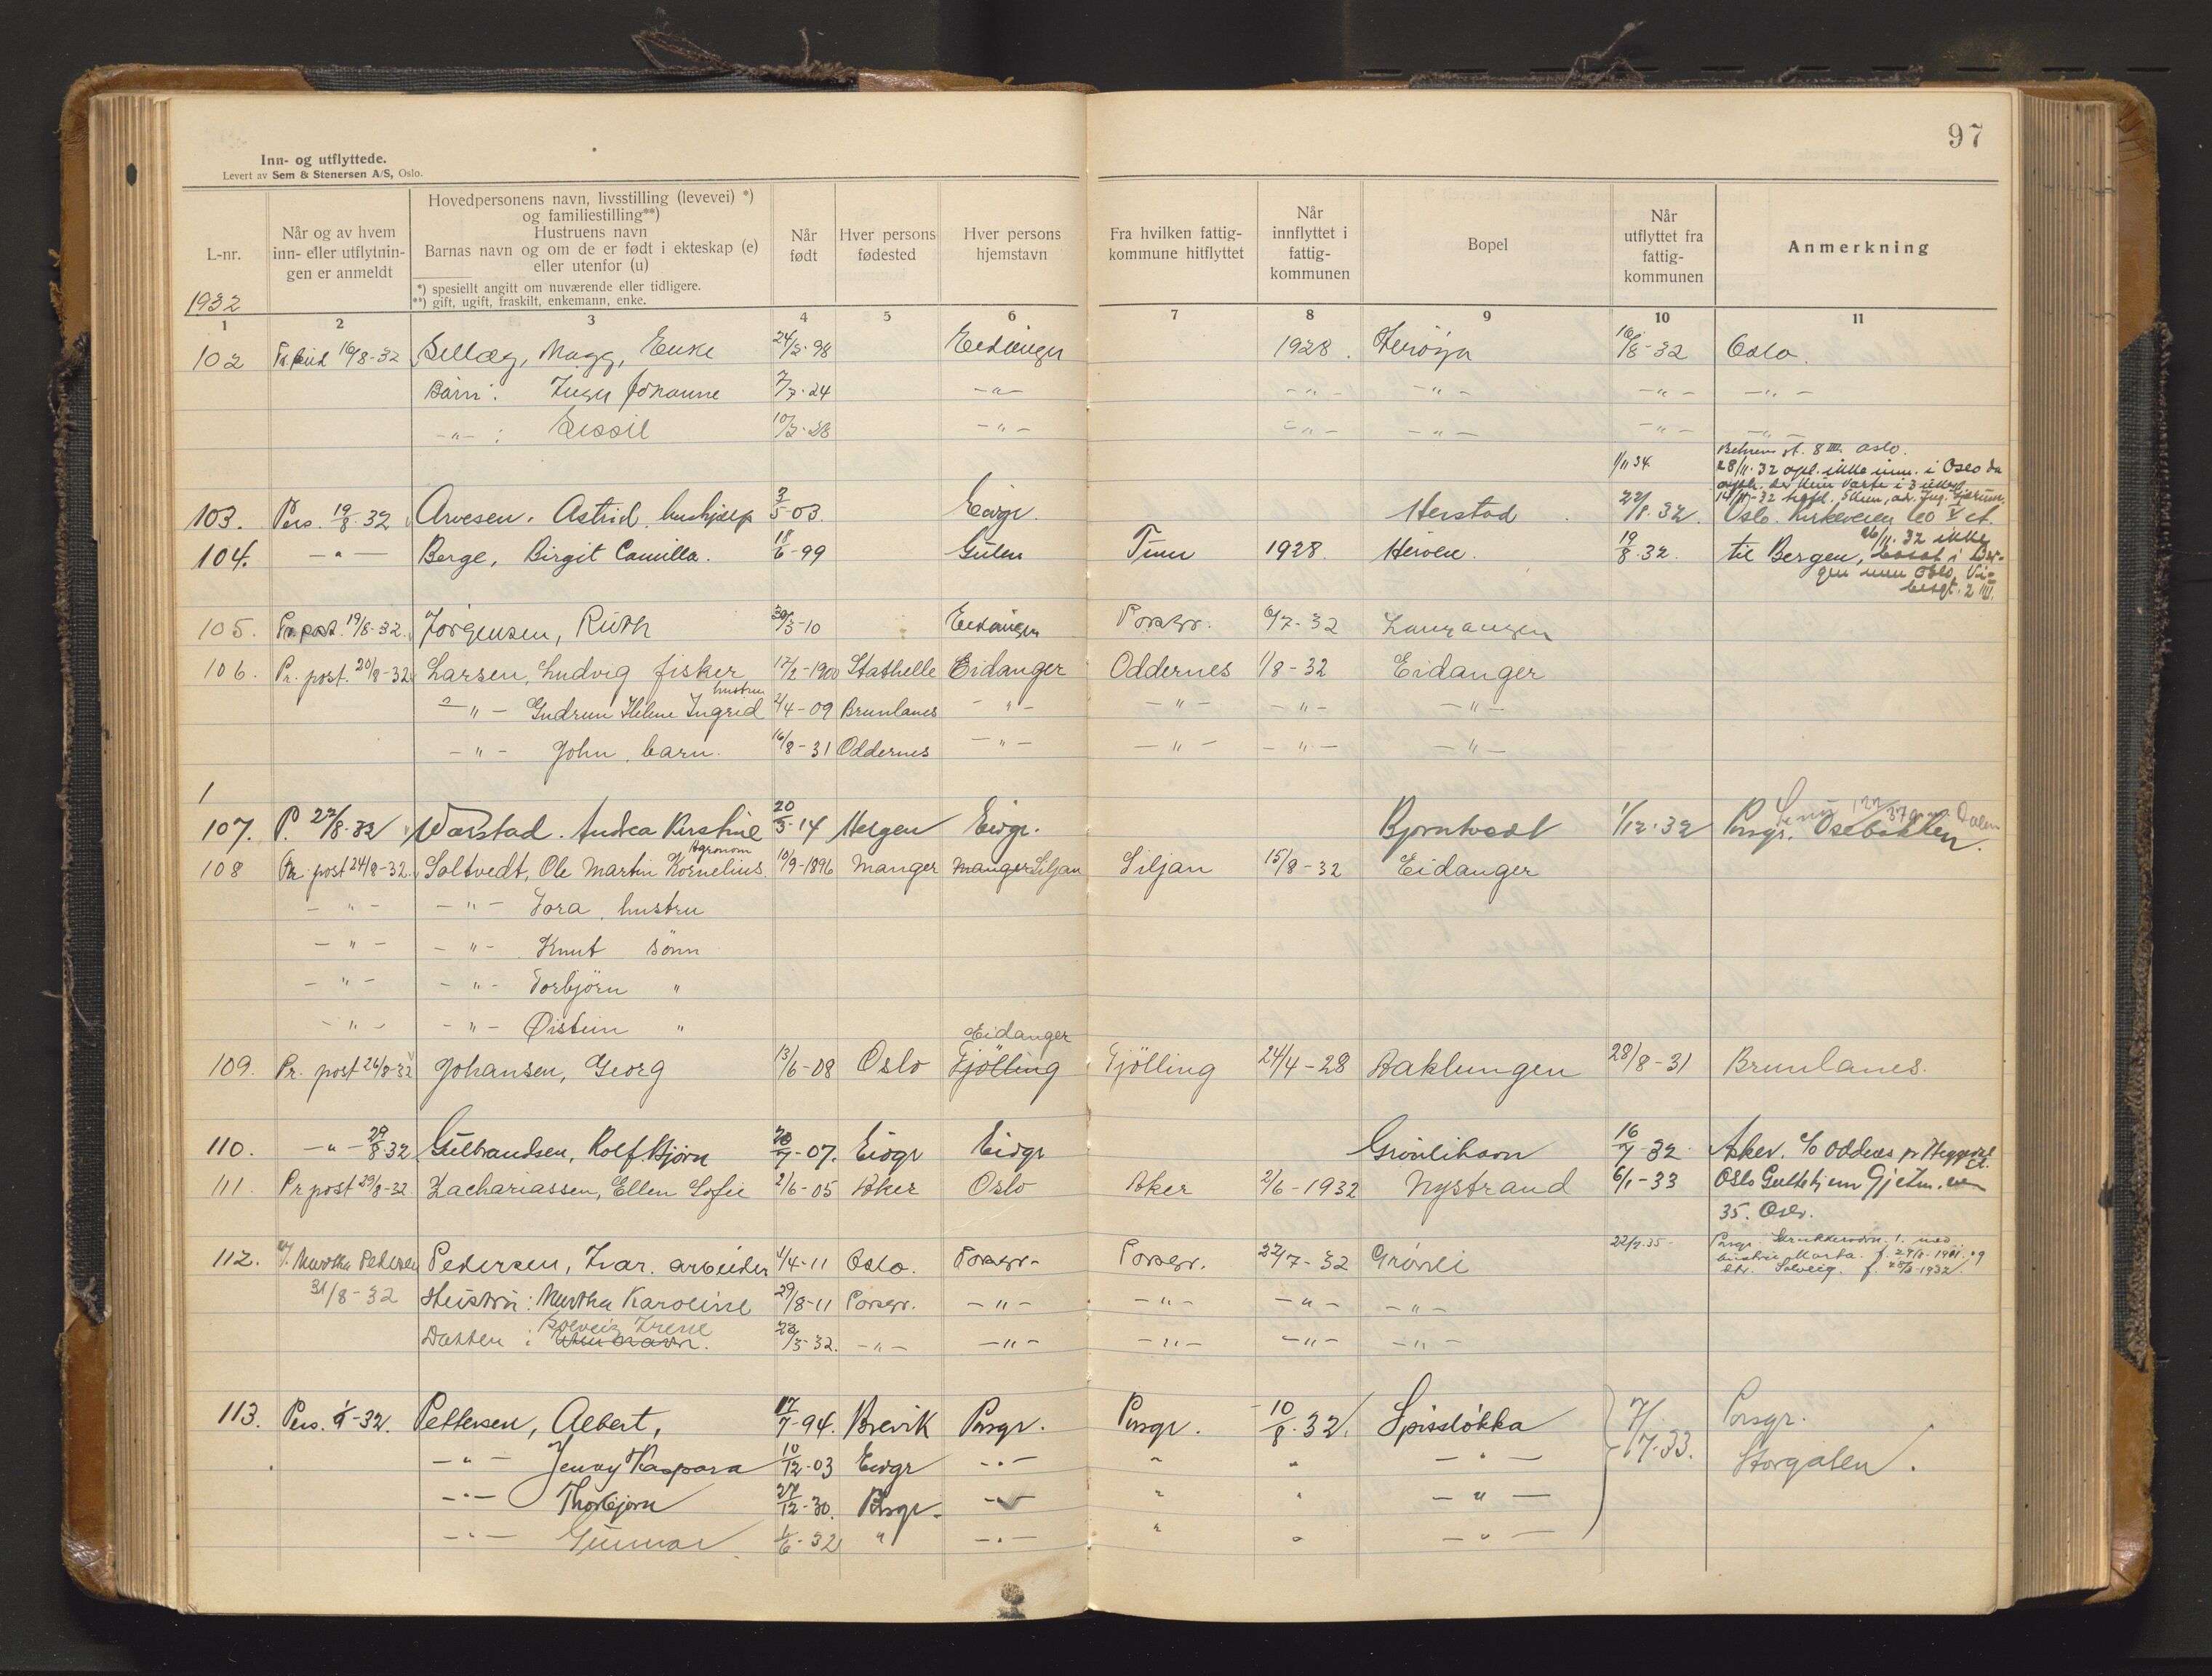 97
Inn- og utflyttede.
Levert av Sem & Stenersen A/S, Oslo.
L-nr.
1932
Når og av hvem
inn- eller utflytnin-
gen er anmeldt
Hovedpersonens navn, livsstilling (levevei) *)
og familiestilling**)
Hustruens navn
Barnas navn og om de er født i ekteskap (e)
eller utenfor (u)
*) spesiellt angitt om nuværende eller tidligere.
**) gift, ugift, fraskilt, enkemann, enke.
Når
født
Hver persons
fødested
Hver persons
hjemstavn
Fra hvilken fattig-
kommune hitflyttet
Når
innflyttet i
fattig-
kommunen
Bopel
Når
utflyttet fra
fattig-
kommunen
Anmerkning
1 2 3 4 5 6 7 8 9 10 11
102 16/8-32 Sellæg, Magg, Enke 24/2-98 Eidanger 1928. Herøya 16/8-32 Oslo.
Barn: Inger Johanne 7/7-24 -"- -"- -"- -"- -"-
-"-: Eissil -"- -"- -"- -"- -"-
1/11 34. 8 III. Oslo.
28/11-32 opl. ikke inn. i Oslo da
103. Pers. 19/8-32 Arvesen. Astrid, hushjælp 3/5-03. Eidgr. Herstad 22/8-32. Oslo. Kirkeveien
104. -"- Berge, Birgit Camilla. 18/6-99 Gulen Tinn 1928. Herøen. 19/8-32. til Bergen, 26/11.32 ikke
bosat i Ber-
gen men Oslo,
105. Pr. post. 19/8-32. Jørgensen, Ruth 30/3-10 Eidanger Porsgr. 6/7-32 Langangen
106. Pr. post. 20/8-32 Larsen, Ludvig fisker 17/2-1900 Stathelle Eidanger Oddernes 1/8-32 Eidanger
-"- Gudrun Helene Ingrid hustru 2/4-09 Brunlanes -"- -"- -"- -"-
-"- John, barn. 16/8-31 Oddernes -"- -"- -"- -"-
1
107. P. 22/8-32 Varstad. Andrea Kirstine 20/3-14 Helgen Eidgr. Bjørntvedt 1/12-32 Porsgr. Osebakken.
108 Pr. post 24/8-32. Saltvedt, Ole Martin Kornelius. Agronom 10/9-1896 Manger Manger Siljan Siljan 15/8-32 Eidanger
-"- -"- Tora, hustru
-"- -"- Knut sønn
-"- -"- Torbjørn "
-"- -"- Øistein "
Eidanger
109. Pr. post 26/8-32 Johansen, Georg 13/6-08 Oslo Tjölling Tjölling 24/4-28 Oaklungen 28/8-31 Brunlanes.
110. -"- 29/8-32 Gulbrandsen, Rolf Bjørn 20/7-07. Eidgr Eidgr Grønlihavn 16/7-32 Asker.
111. Pr post 29/8-32 Zachariassen, Ellen Sofie 2/6-05 Aker Oslo Aker 2/6-1932 Nystrand 6/1-33 Oslo
35. Oslo.
112. Martha Pedersen Pedersen, Ivar. arbeider 4/4-11 Oslo. Porsgr. Porsgr. 22/7-32 Grønli 22/7.35 Porsgr.
31/8-32 Hustru: Martha Karoline 29/8-11 Porsgr. -"- -"- -"- -"- hustru Marta.
Datter: Solveig Irene 28/3-32. -"- -"- -"- -"- -"- Solveig. f. 28/3-1932.
113. Pers. 1/9-32. Pettersen, Albert, 17/7-94. Brevik Porsgr. Porsgr. 10/8-32. Spissløkka 7/7-33. Porsgr.
-"- Jenny Kaspara 10/12-03 Eidgr -"- " " -"- Storgaten.
-"- Thorbjørn 27/12-30. Porsgr. -"- " " -"-
-"- Gunnar 4/6-32 " -"- " " -"-